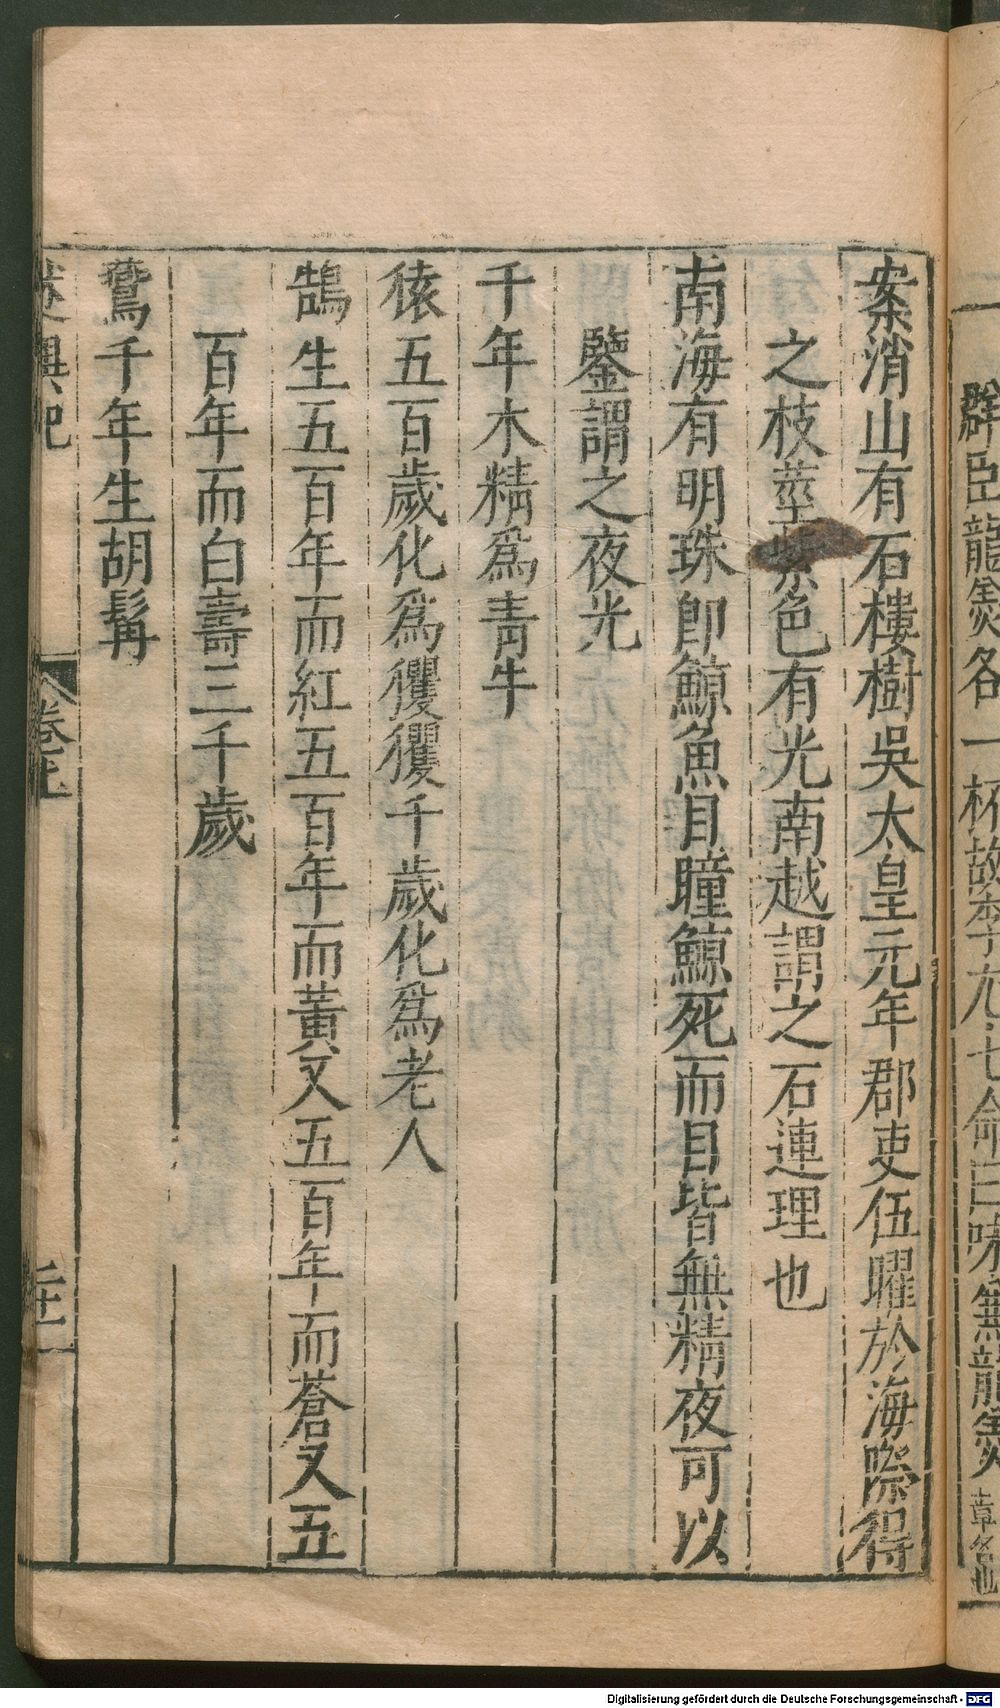 群臣龍羹各一杯故李
七命曰味無龍羹
案消山有石樓樹吳太皇元年郡吏伍曜於海際得
之枝莖紫色有光南越謂之石連理也
南海有明珠卽鯨魚目瞳鯨死而目皆無精夜可以
鑒謂之夜光
千年木精爲青牛
猿五百歲化爲玃玃千歲化爲老人
鵠生五百年而紅五百年而黃又五百年而蒼又五
百年而白壽三千歲
鶯千年生胡髯
述異記
卷七
Digitalisierung gefördert durch die Deutsche Forschungsgemeinschaft - DFG